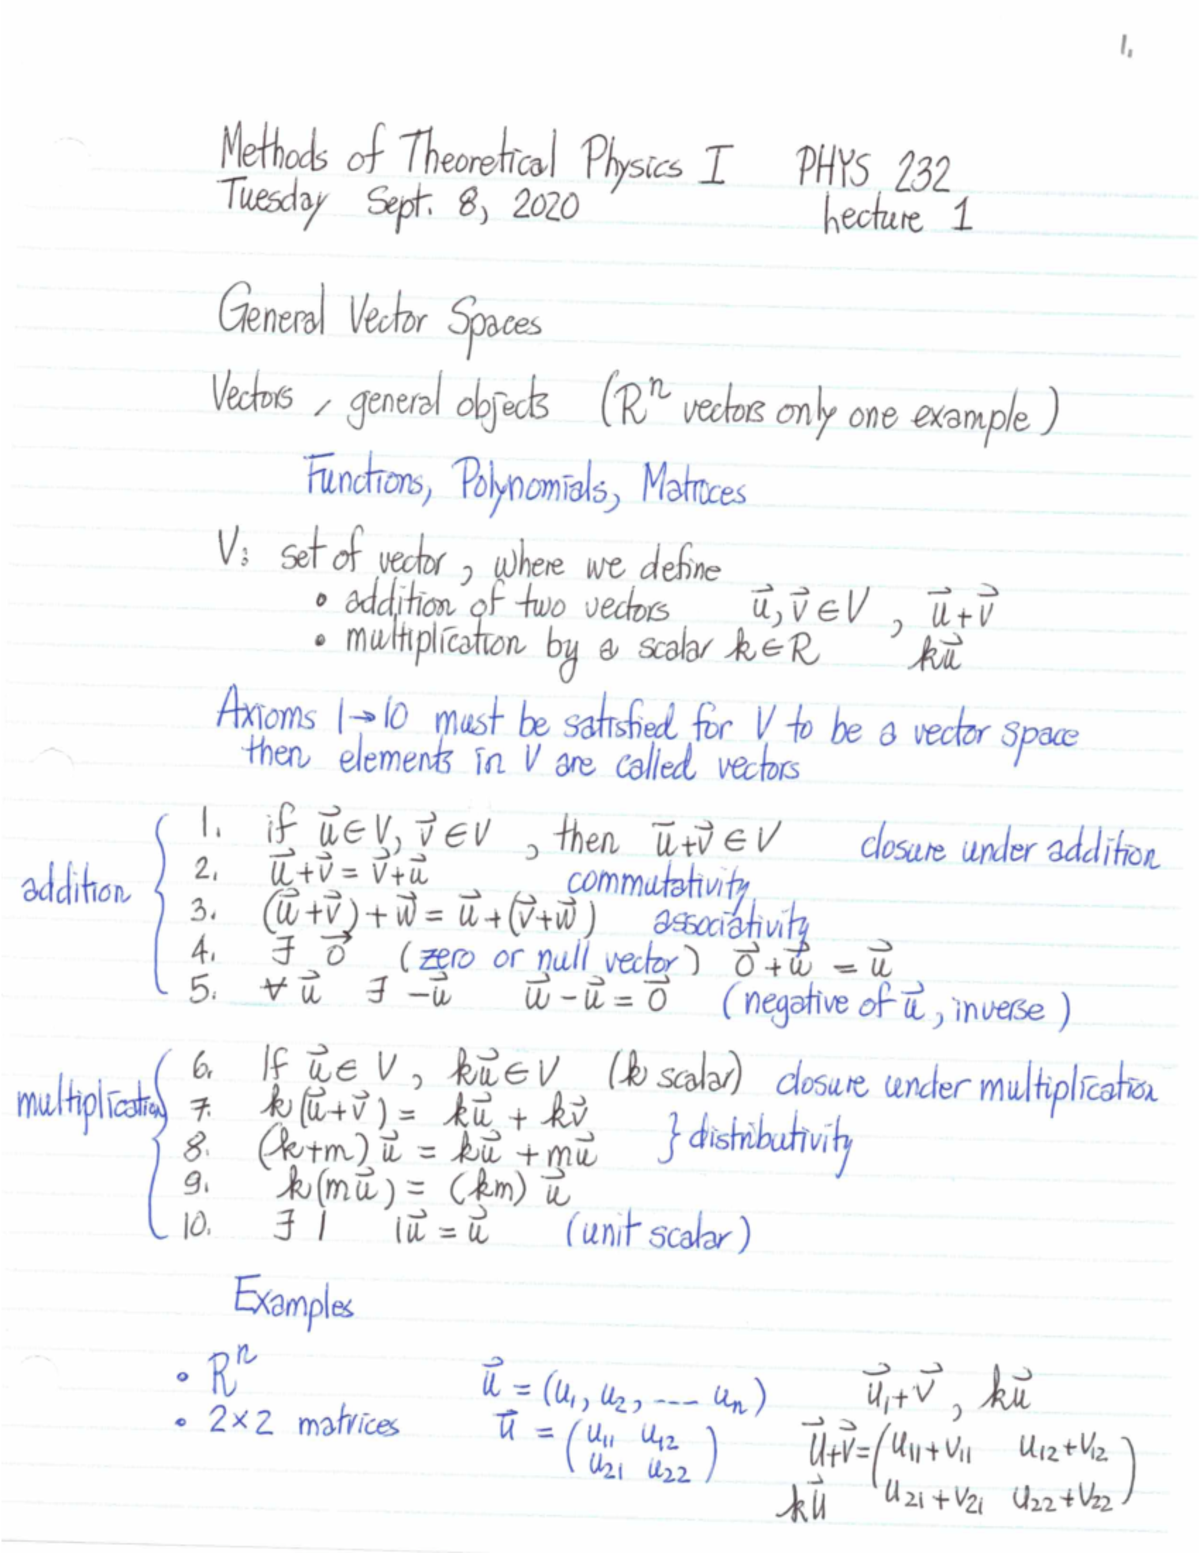 1.
Methods of Theoretical Physics I PHYS 232
Tuesday Sept. 8, 2020 Lecture 1
General Vector Spaces
Vectors, general objects (Rⁿ vectors only one example)
Functions, Polynomials, Matrices
V: set of vector, where we define
• addition of two vectors u⃗, v⃗ ∈ V , u⃗+v⃗
• multiplication by a scalar k∈R ku⃗
Axioms 1→10 must be satisfied for V to be a vector space
then elements in V are called vectors
addition
1. if u⃗ ∈ V, v⃗ ∈ V , then u⃗+v⃗ ∈ V closure under addition
2. u⃗+v⃗ = v⃗+u⃗ commutativity
3. (u⃗+v⃗)+w⃗ = u⃗+(v⃗+w⃗) associativity
4. ∃ 0⃗ (zero or null vector) 0⃗+u⃗ = u⃗
5. ∀ u⃗ ∃ -u⃗ u⃗-u⃗ = 0⃗ (negative of u⃗, inverse)
multiplication
6. If u⃗ ∈ V, ku⃗ ∈ V (k scalar) closure under multiplication
7. k(u⃗+v⃗) = ku⃗ + kv⃗
8. (k+m)u⃗ = ku⃗ + mu⃗ } distributivity
9. k(mu⃗) = (km) u⃗
10. ∃ 1 1u⃗ = u⃗ (unit scalar)
Examples
• Rⁿ u⃗ = (u₁, u₂, ---- uₙ) u⃗,+v⃗ , ku⃗
• 2×2 matrices u⃗ = (u₁₁ u₁₂ u⃗+v⃗=(u₁₁+v₁₁ u₁₂+v₁₂
u₂₁ u₂₂) u₂₁+v₂₁ u₂₂+v₂₂)
ku⃗